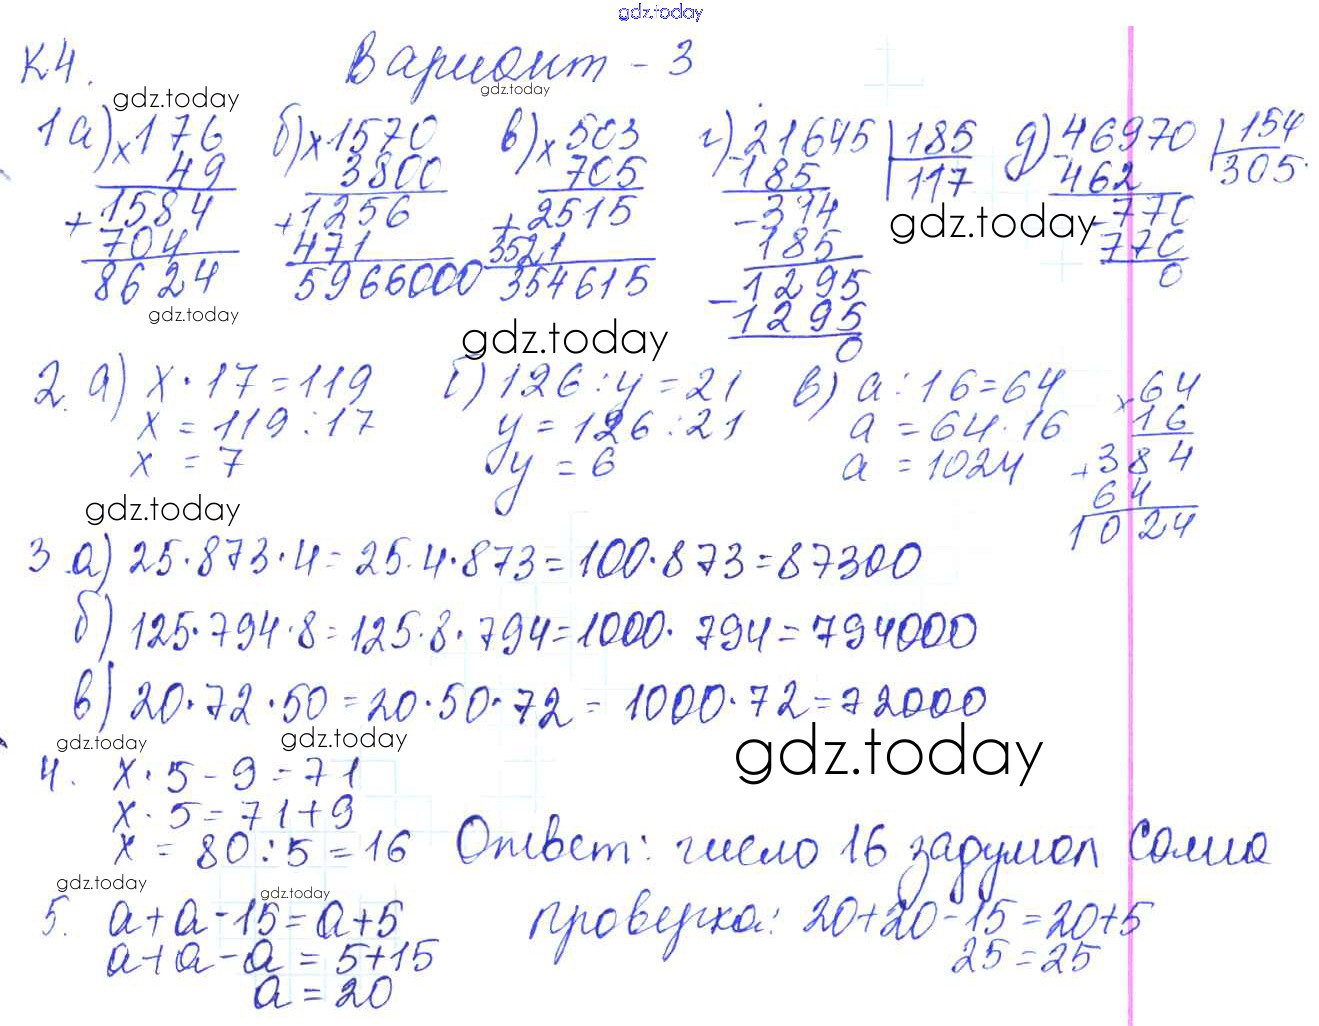 gdz.today
К4. Вариант - 3
gdz.today gdz.today
1 а) × 176 б) × 1570 в) × 503 г) 21645 | 185 д) 46970 | 154
49 3800 705 185 117 462 305.
+ 1584 + 1256 + 2515 - 314 gdz.today - 770
704 471 3521 185 770
8624 5966000 354615 - 1295 0
gdz.today gdz.today 1295
0
2. а) x · 17 = 119 б) 126 : y = 21 в) a : 16 = 64 × 64
x = 119 : 17 y = 126 : 21 a = 64 · 16 16
x = 7 y = 6 a = 1024 + 384
gdz.today 64
1024
3. а) 25 · 873 · 4 = 25 · 4 · 873 = 100 · 873 = 87300
б) 125 · 794 · 8 = 125 · 8 · 794 = 1000 · 794 = 794000
в) 20 · 72 · 50 = 20 · 50 · 72 = 1000 · 72 = 72000
gdz.today gdz.today gdz.today
4. x · 5 - 9 = 71
x · 5 = 71 + 9
x = 80 : 5 = 16 Ответ: число 16 задумал Сома
gdz.today gdz.today
5. a + a - 15 = a + 5 проверка: 20 + 20 - 15 = 20 + 5
a + a - a = 5 + 15 25 = 25
a = 20